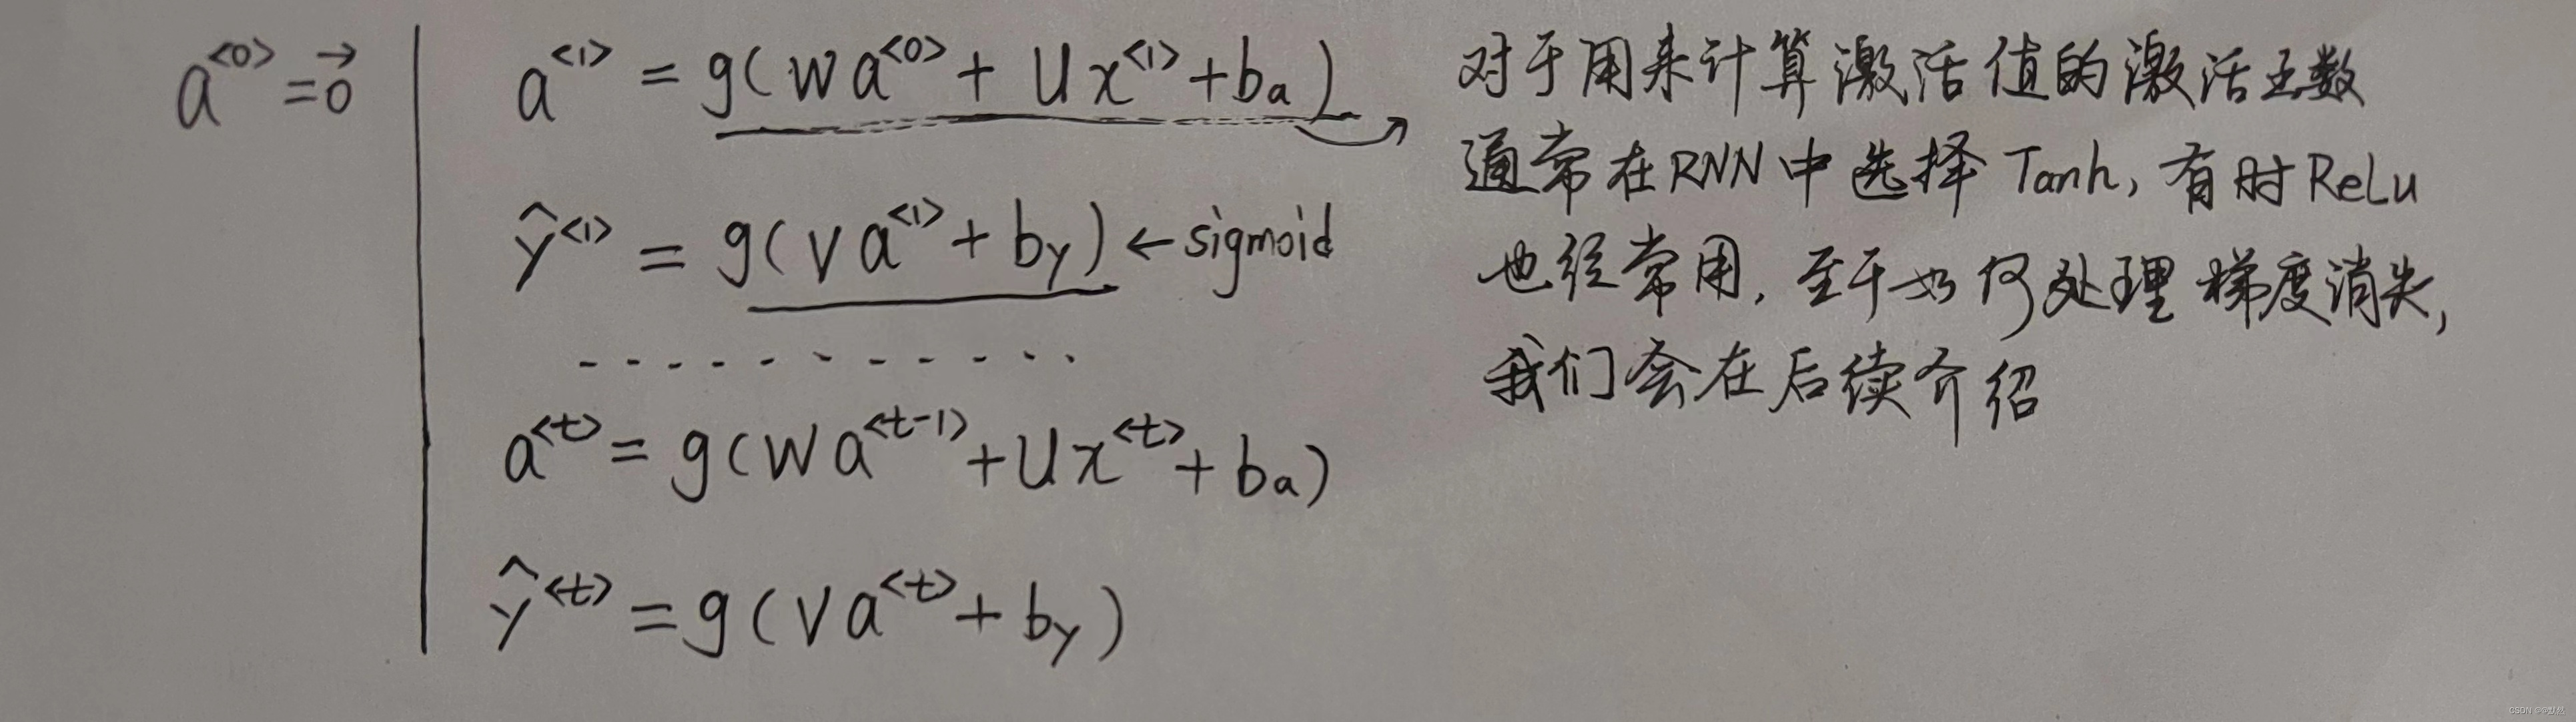 a^{<0>} = \vec{0}
a^{<1>} = g(Wa^{<0>} + Ux^{<1>} + b_a)
ŷ^{<1>} = g(Va^{<1>} + b_y) ← sigmoid
............
a^{<t>} = g(Wa^{<t-1>} + Ux^{<t>} + b_a)
ŷ^{<t>} = g(Va^{<t>} + b_y)
对于用来计算激活值的激活函数
通常在RNN中选择Tanh,有时ReLu
也经常用,至于如何处理梯度消失,
我们会在后续介绍